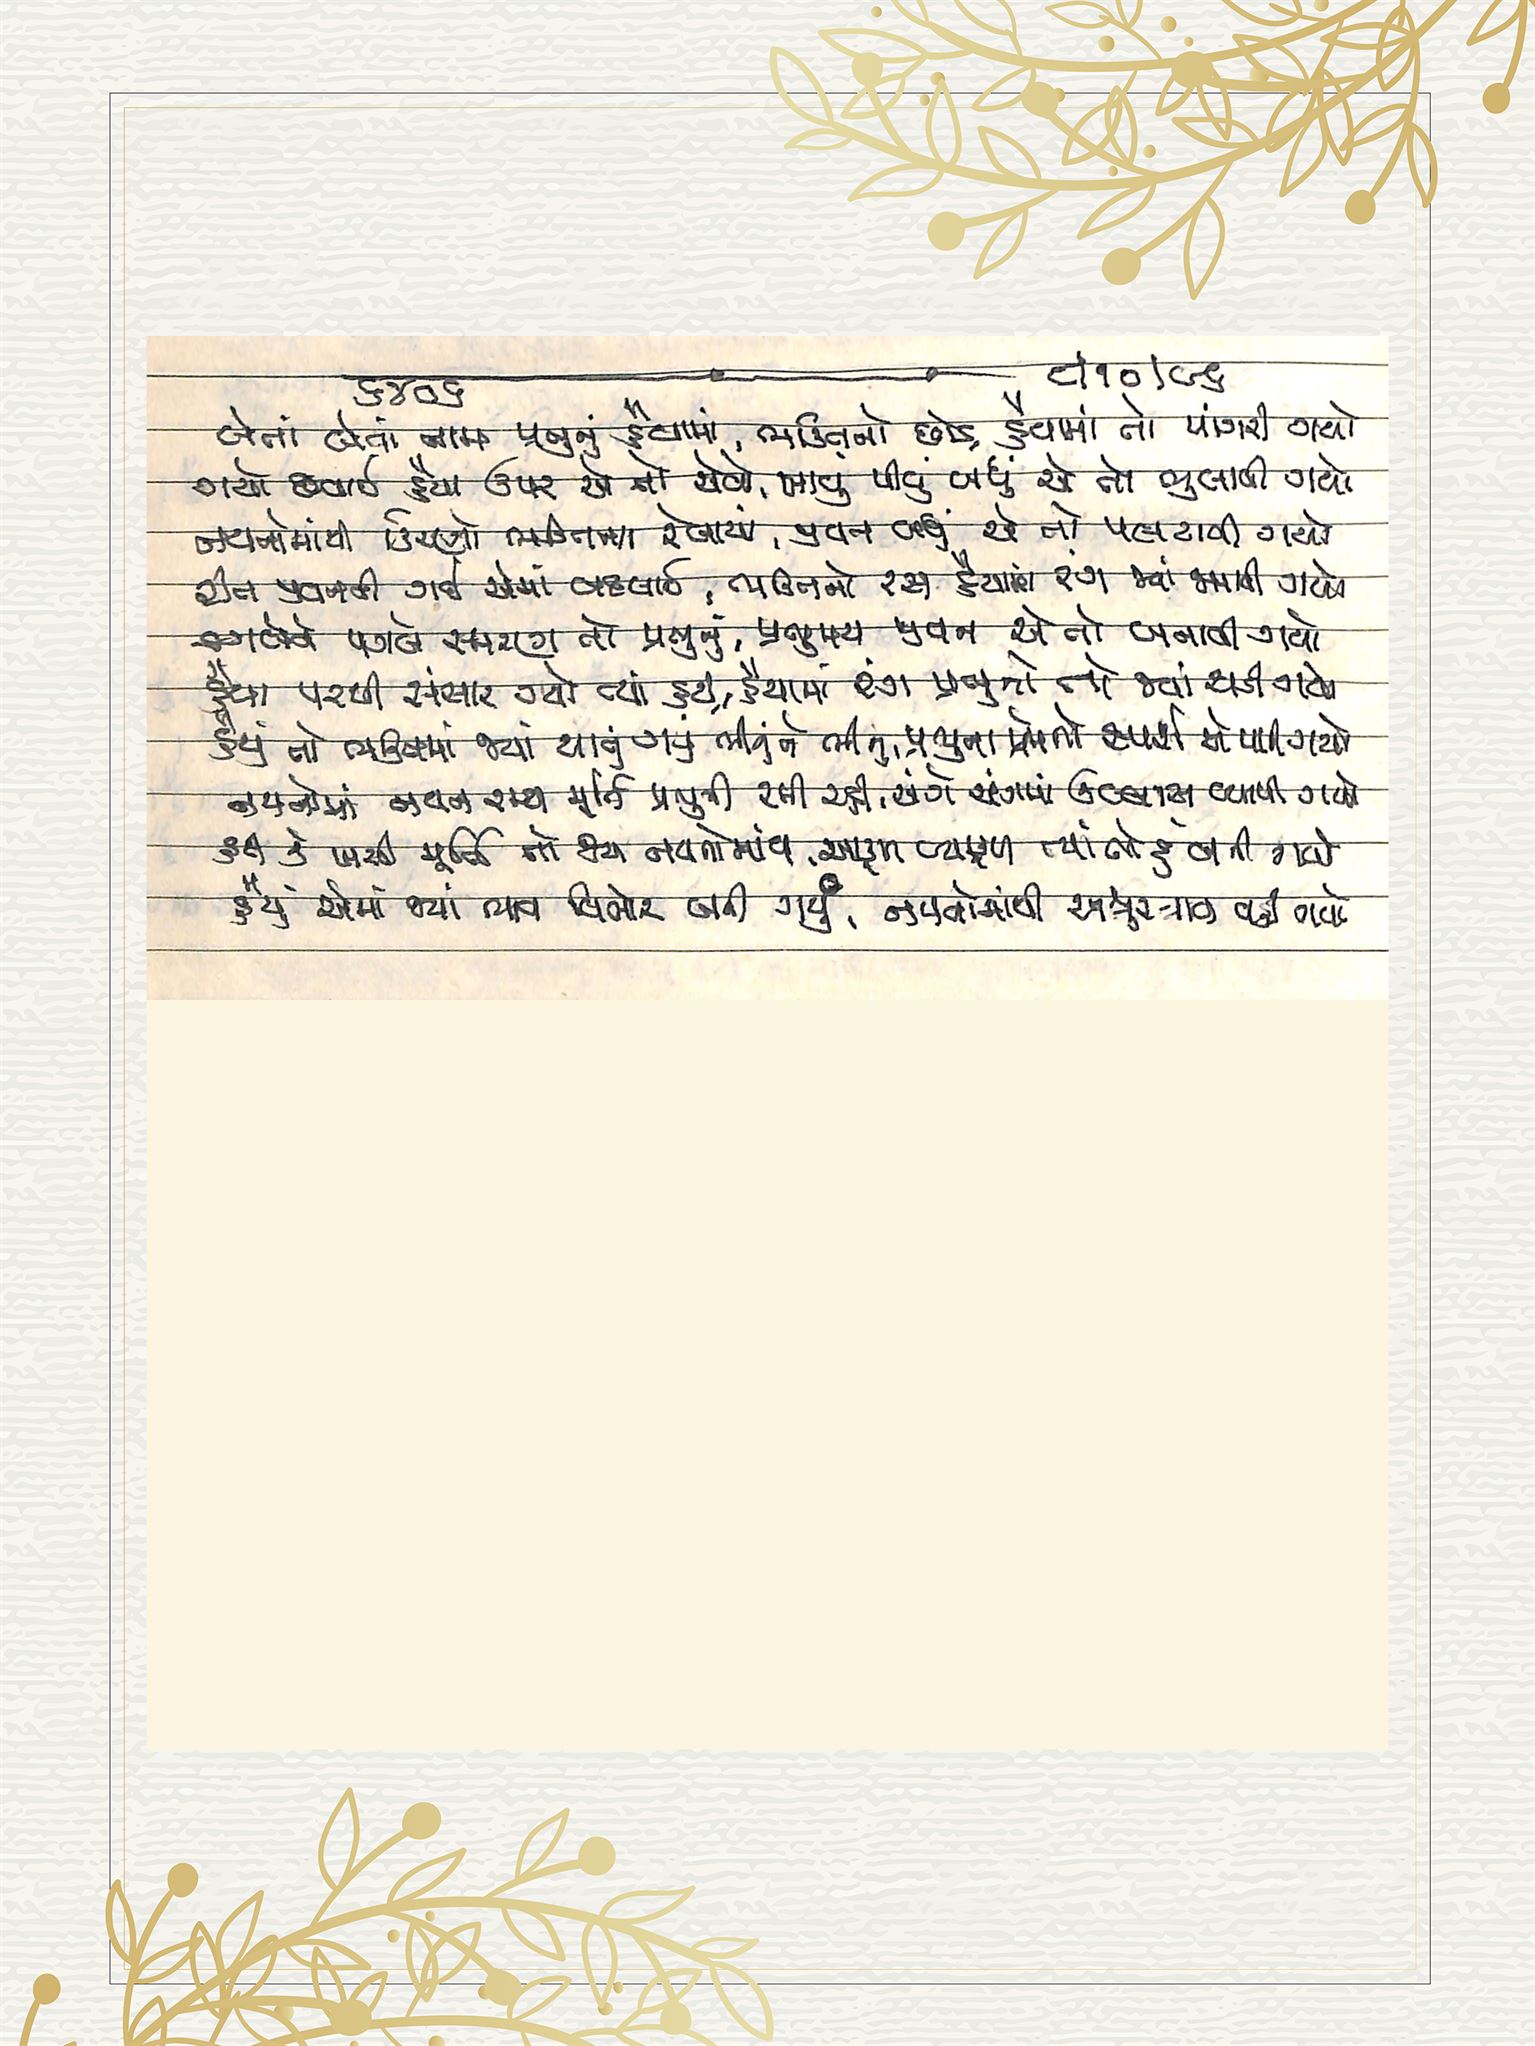 ૬૪૦૬
૮/૧૦/૮૬
લેતાં લેતાં નામ પ્રભુનું હૈયામાં, ભક્તિનો છોડ હૈયામાં તો પાંગરી ગયો
ગયો છવાઈ હૈયા ઉપર એ તો એવો, ખાવું પીવું બધું એ તો ભુલાવી ગયો
નયનોમાંથી કિરણો ભક્તિના રેલાયાં, જીવન બધું એ તો પલટાવી ગયો
રીત જીવનની ગઈ એમાં બદલાઈ, ભક્તિનો રસ હૈયામાં રંગ જ્યાં જમાવી ગયો
પગલે સ્મરણ તો પ્રભુનું, પ્રભુમય જીવન એ તો બનાવી ગયો
હૈયા પરથી સંસાર ગયો ત્યાં હટી, હૈયામાં રંગ પ્રભુનો તો જ્યાં ચડી ગયો
હૈયું તો ભક્તિમાં જ્યાં થાતું ગયું ભીનું ને ભીનું, પ્રભુના પ્રેમનો સ્પર્શ એ પામી ગયો
નયનોમાં નવન રમ્ય મૂર્તિ પ્રભુની રમી રહી, અંગે અંગમાં ઉલ્લાસ વ્યાપી ગયો
હટી કે ખસી મૂર્તિ તો જ્યાં નયનોમાંથી, વ્યાકુળ ત્યાં તો હું બની ગયો
હૈયું એમાં જ્યાં ભાવ વિભોર બની ગયું, નયનોમાંથી અશ્રુસ્ત્રાવ વહી ગયો